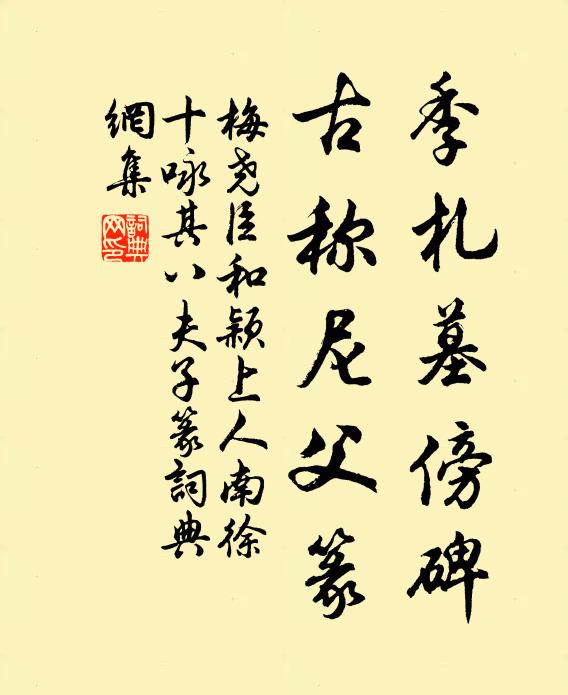 季札墓傍碑
古称尼父篆
梅尧臣和颖上人南徐
十咏其八夫子篆词典
網集
詞典
网印